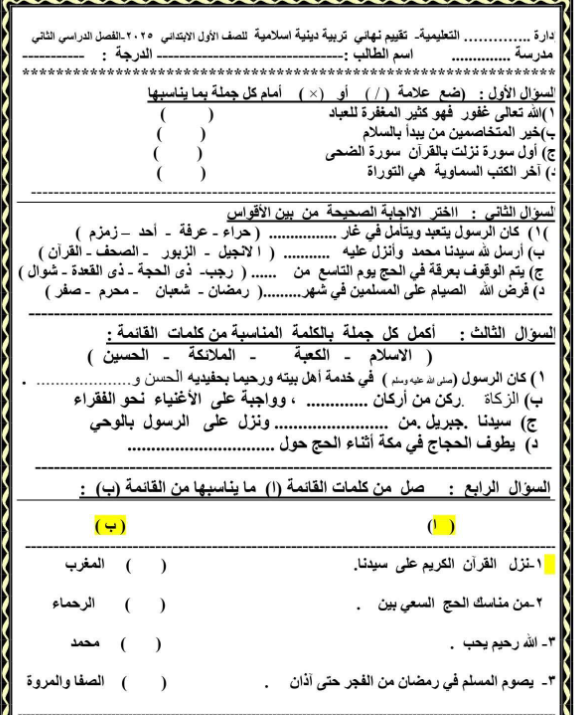 دارة .............. التعليمية- تقييم نهائي تربية دينية اسلامية للصف الأول الابتدائي ٢٠٢٥-الفصل الدراسي الثاني
مدرسة .............. اسم الطالب :------------------------ الدرجة : -----------
********************************************************
السؤال الأول : (ضع علامة ( / ) أو ( × ) أمام كل جملة بما يناسبها
١)الله تعالى غفور فهو كثير المغفرة للعباد ( )
ب)خير المتخاصمين من يبدأ بالسلام ( )
ج) أول سورة نزلت بالقرآن سورة الضحى ( )
د) آخر الكتب السماوية هي التوراة ( )
السؤال الثاني : اختر الاجابة الصحيحة من بين الأقواس
١) كان الرسول يتعبد ويتأمل في غار ................ ( حراء - عرفة - أحد – زمزم )
ب) أرسل الله سيدنا محمد وأنزل عليه ........... ( الانجيل - الزبور - الصحف - القرآن )
ج) يتم الوقوف بعرقة في الحج يوم التاسع من ...... ( رجب- ذى الحجة - ذى القعدة - شوال )
د) فرض الله الصيام على المسلمين في شهر.........( رمضان - شعبان - محرم - صفر )
السؤال الثالث : أكمل كل جملة بالكلمة المناسبة من كلمات القائمة :
( الاسلام - الكعبة - الملائكة - الحسين )
١) كان الرسول (صلى الله عليه وسلم ) في خدمة أهل بيته ورحيما بحفيديه الحسن و..................... .
ب) الزكاة ركن من أركان ............. ، وواجبة على الأغنياء نحو الفقراء
ج) سيدنا .جبريل. من ........................ ونزل على الرسول بالوحي
د) يطوف الحجاج في مكة أثناء الحج حول ..............................
السؤال الرابع : صل من كلمات القائمة (ا) ما يناسبها من القائمة (ب) :
( ا) ( ب )
١-نزل القرآن الكريم على سيدنا. ( ) المغرب
٢-من مناسك الحج السعي بين . ( ) الرحماء
٣- الله رحيم يحب . ( ) محمد
٣- يصوم المسلم في رمضان من الفجر حتى آذان . ( ) الصفا والمروة